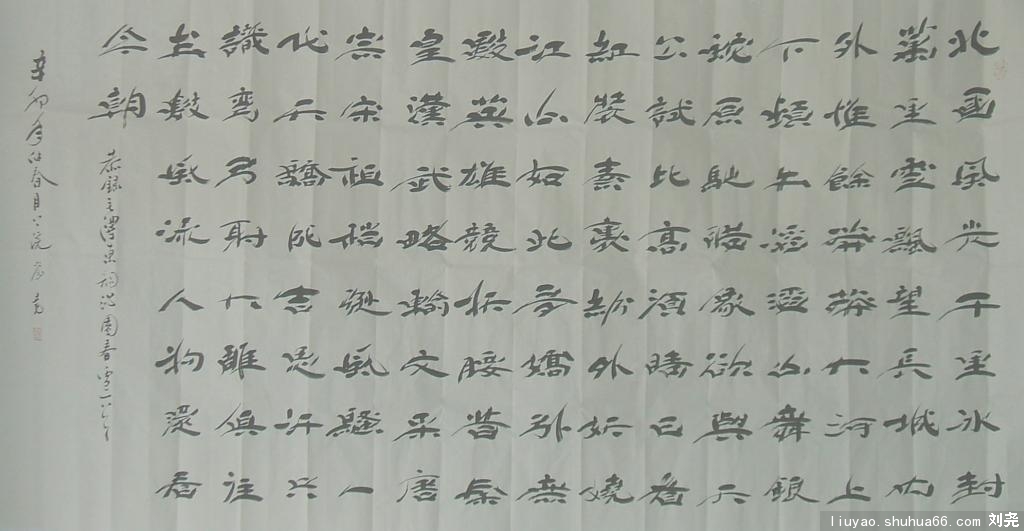 北國風光千里冰封
萬里雪飄望長城內
外惟餘莽莽大河上
下頓失滔滔山舞銀
蛇原馳蠟象欲與天
公試比高須晴日看
紅裝素裹紛外妖嬈
江山如此多嬌引無
數英雄競折腰昔秦
皇漢武略輸文采唐
宗宋祖稍遜風騷一
代天驕成吉思汗只
識彎弓射大雕俱往
矣數風流人物還看
今朝
恭錄毛澤東詞沁園春雪一首
辛卯年仲春月
liuyao.shuhua66.com 刘尧